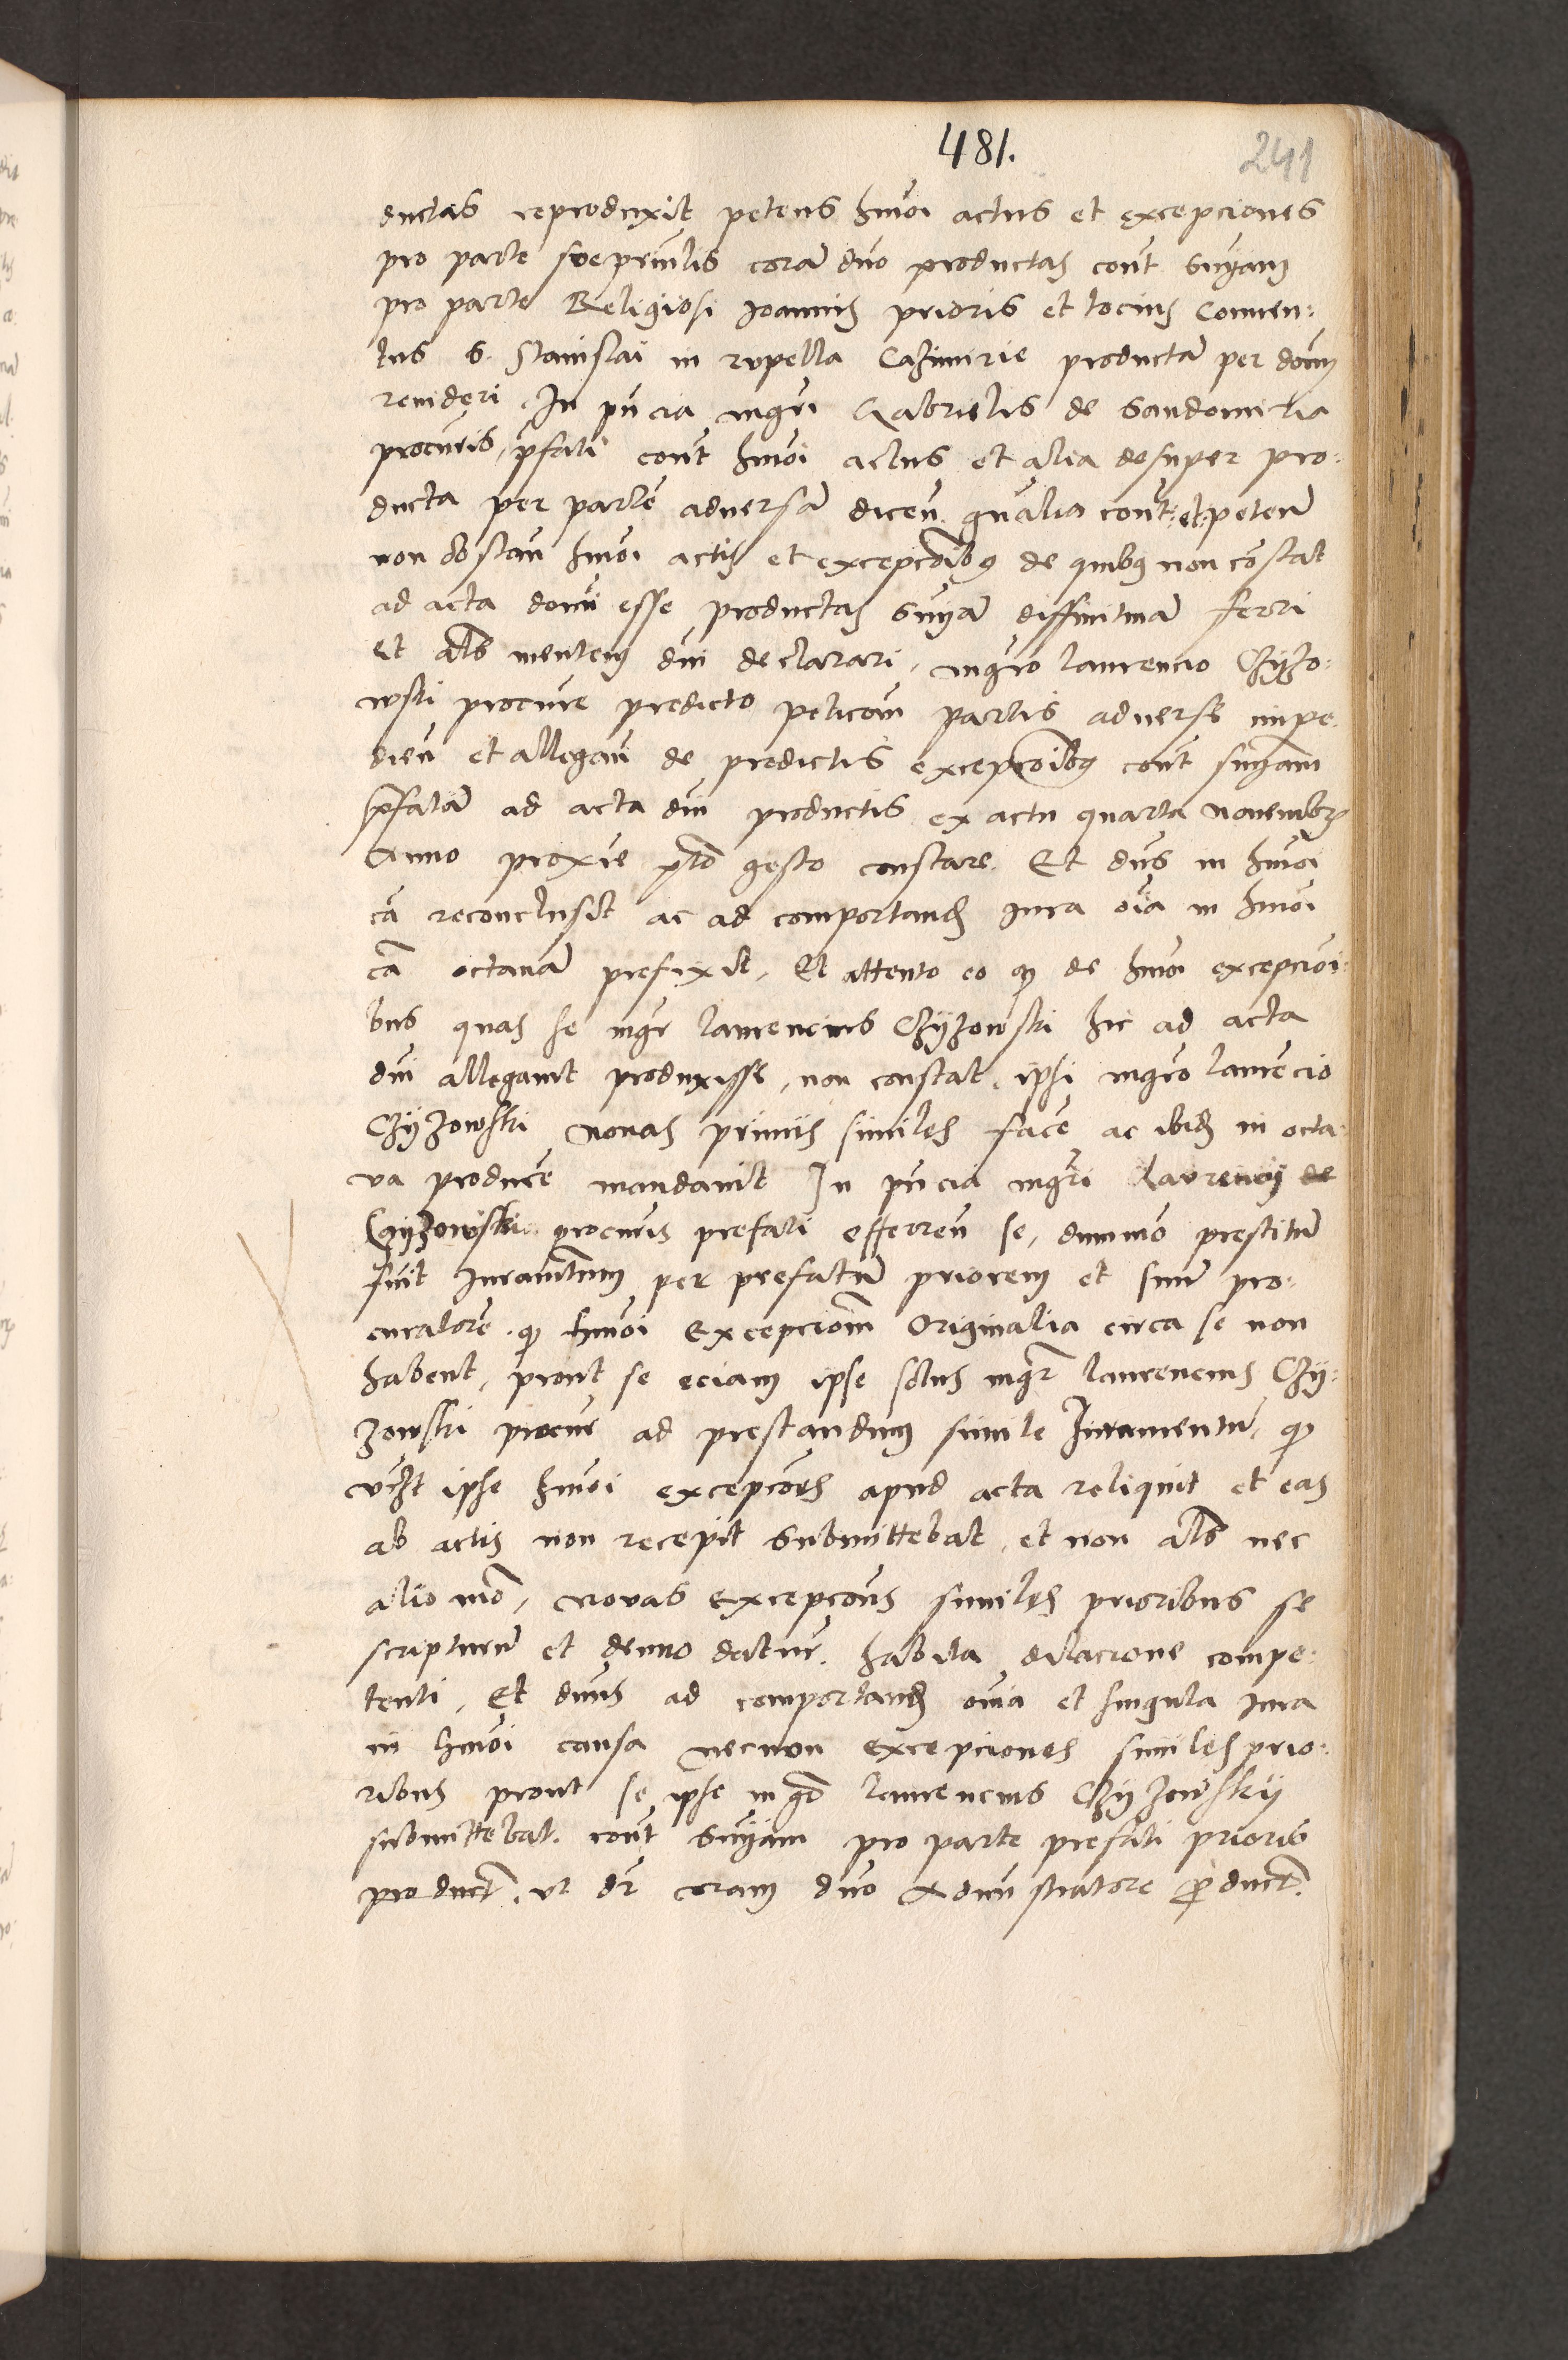 481.
241
ductas reproduxit petens hmoi actus et excepciones
pro parte sue prinlis corā dno productas cont sniam
pro parte Religiosi Joannis prioris et tocius Conuen:
tus S. Stanislai in rupella Cazimirie productā per dnum
reuideri. In pncia mgri Gabrielis de Sandomiria
procuris, pfati cont hmoi actus et alia desuper pro:
ducta per partē aduersā dicen gnalia cont: et peten
non obstan hmoi actis et excepcoibus de quibus non cōstat
ad acta domi esse productas sniam diffinitiuā ferri
Et als mentem dni declarari, mgro Laurencio Czyzo:
wski procure predicto peticom partis aduerse impe:
dien et allegan de predictis excepcoibus cont sniam
pfatā ad acta dni productis ex actu quarta nouembr
Anno proxie pto gesto constare. Et dns in hmoi
cā reconclusit ac ad comportand iura oia in hmoi
cā octauā prefixit, Et attento eo q de hmoi excepcioi:
bus quas se mgr Laurencius Czyzowski hic ad acta
dni allegauit produxisse, non constat. ipsi mgro Laurēcio
Czyzowski nouas primis similes facē ac ibid in octa:
va producē mandauit In pncia mgri Laurencij de
Czyzowski procuris prefati efferren se, dummō prestitū
fuit Iuramtum per prefatum priorem et suum pro:
curatorē q hmoi Excepcionū Originalia circa se non
habent, prout se eciam ipse solus mgr Laurencius Czy:
zowski procur ad prestandum simile Iuramentū, q
ipse hmoi excepcoes apud acta reliquit et eas
ab actis non recepit submittebat, et non als nec
alio mō, nouas excepcones similes prioribus se
scripturum et denuo datur. habita dilacione compe:
tenti, Et dnus ad comportand oīa et singula iura
in hmoi causa necnon excepciones similes prio:
ribus prout se ipse mgr Laurencius Czyzowsky
submittebat. cont sniam pro parte prefati prioris
product. vt dr coram dno Administratore pduct.